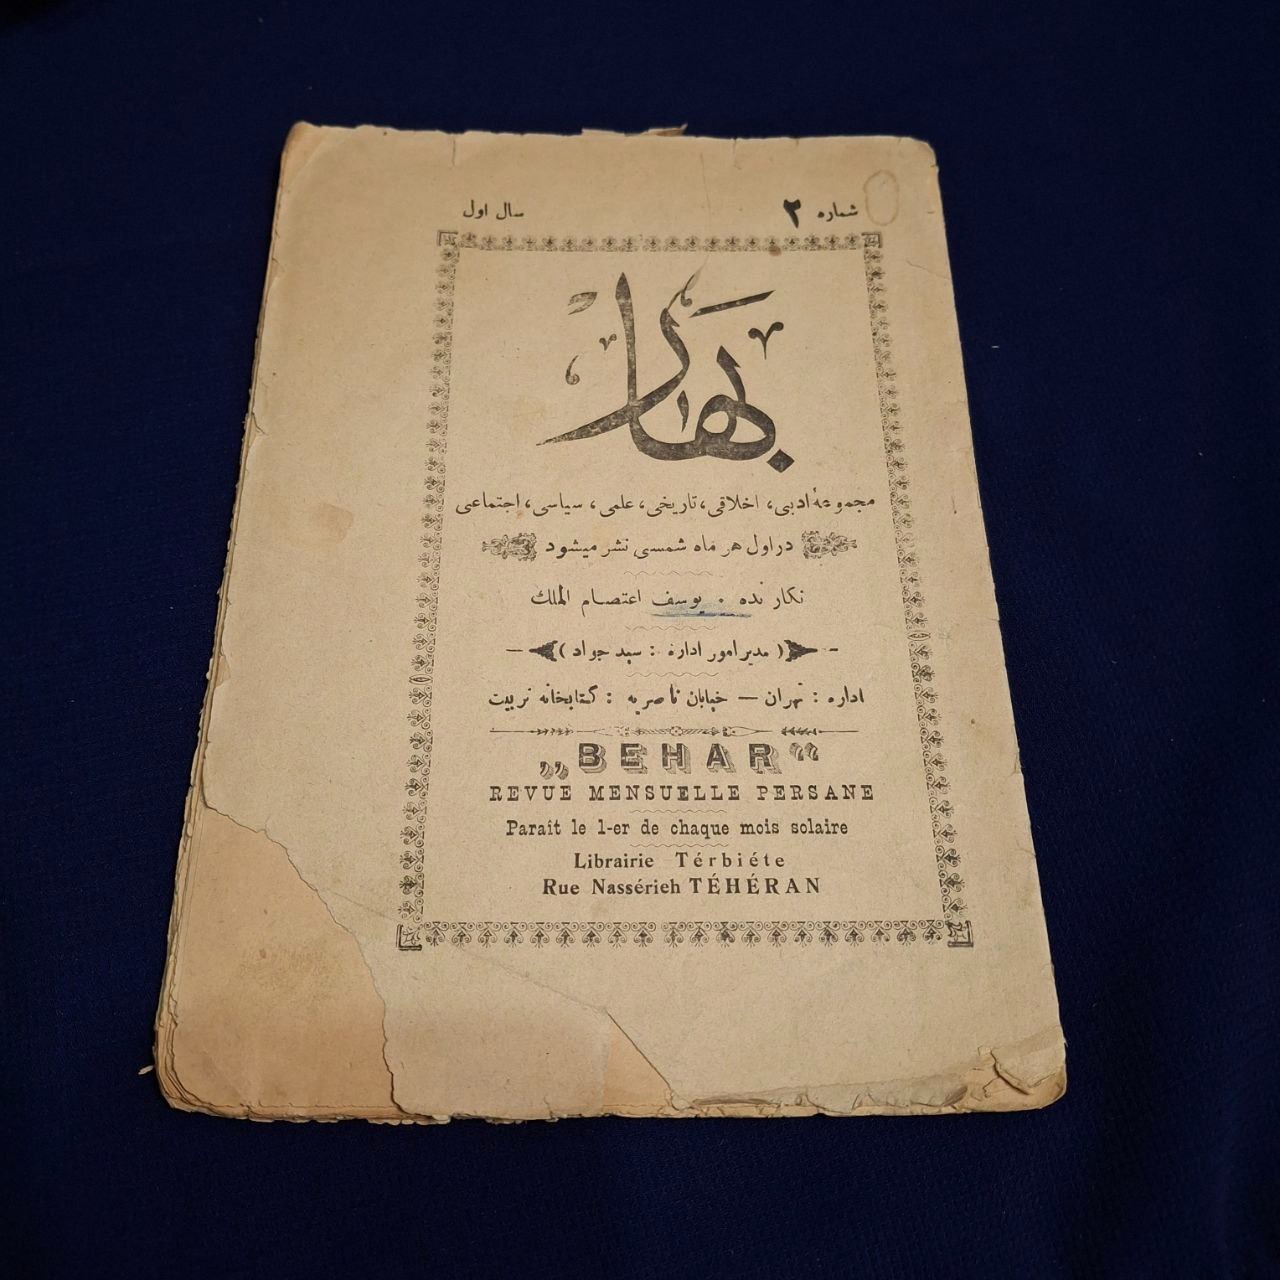 شماره ۲ سال اول
بهار
مجموعهٔ ادبی، اخلاقی، تاریخی، علمی، سیاسی، اجتماعی
در اول هر ماه شمسی نشر میشود
نکارنده • یوسف اعتصام الملك
( مدیر امور اداره : سید جواد )
اداره : تهران — خیابان ناصریه : کتابخانه تربیت
„BEHAR“
REVUE MENSUELLE PERSANE
Paraît le 1-er de chaque mois solaire
Librairie Térbiéte
Rue Nassérieh TÉHÉRAN